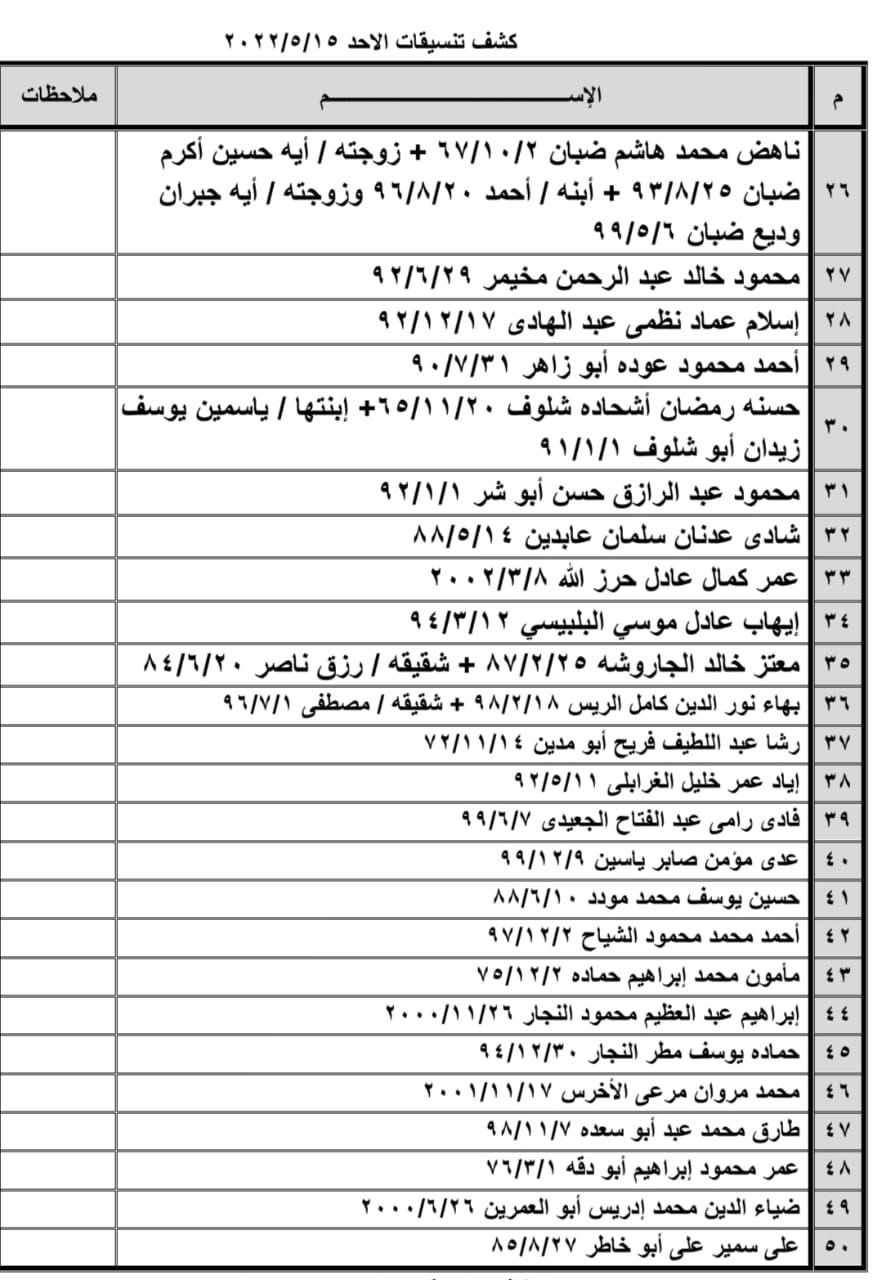 كشف تنسيقات الاحد ٢٠٢٢/٥/١٥
م الإســـــم ملاحظات
٢٦ ناهض محمد هاشم ضبان ٦٧/١٠/٢ + زوجته / أيه حسين أكرم
ضبان ٩٣/٨/٢٥ + أبنه / أحمد ٩٦/٨/٢٠ وزوجته / أيه جبران
وديع ضبان ٩٩/٥/٦
٢٧ محمود خالد عبد الرحمن مخيمر ٩٢/٦/٢٩
٢٨ إسلام عماد نظمى عبد الهادى ٩٢/١٢/١٧
٢٩ أحمد محمود عوده أبو زاهر ٩٠/٧/٣١
٣٠ حسنه رمضان أشحاده شلوف ٦٥/١١/٢٠+ إبنتها / ياسمين يوسف
زيدان أبو شلوف ٩١/١/١
٣١ محمود عبد الرازق حسن أبو شر ٩٢/١/١
٣٢ شادى عدنان سلمان عابدين ٨٨/٥/١٤
٣٣ عمر كمال عادل حرز الله ٢٠٠٢/٣/٨
٣٤ إيهاب عادل موسي البلبيسي ٩٤/٣/١٢
٣٥ معتز خالد الجاروشه ٨٧/٢/٢٥ + شقيقه / رزق ناصر ٨٤/٦/٢٠
٣٦ بهاء نور الدين كامل الريس ٩٨/٢/١٨ + شقيقه / مصطفى ٩٦/٧/١
٣٧ رشا عبد اللطيف فريح أبو مدين ٧٢/١١/١٤
٣٨ إياد عمر خليل الغرابلى ٩٢/٥/١١
٣٩ فادى رامى عبد الفتاح الجعيدى ٩٩/٦/٧
٤٠ عدى مؤمن صابر ياسين ٩٩/١٢/٩
٤١ حسين يوسف محمد مودد ٨٨/٦/١٠
٤٢ أحمد محمد محمود الشياح ٩٧/١٢/٢
٤٣ مأمون محمد إبراهيم حماده ٧٥/١٢/٢
٤٤ إبراهيم عبد العظيم محمود النجار ٢٠٠٠/١١/٢٦
٤٥ حماده يوسف مطر النجار ٩٤/١٢/٣٠
٤٦ محمد مروان مرعى الأخرس ٢٠٠١/١١/١٧
٤٧ طارق محمد عبد أبو سعده ٩٨/١١/٧
٤٨ عمر محمود إبراهيم أبو دقه ٧٦/٣/١
٤٩ ضياء الدين محمد إدريس أبو العمرين ٢٠٠٠/٦/٢٦
٥٠ على سمير على أبو خاطر ٨٥/٨/٢٧